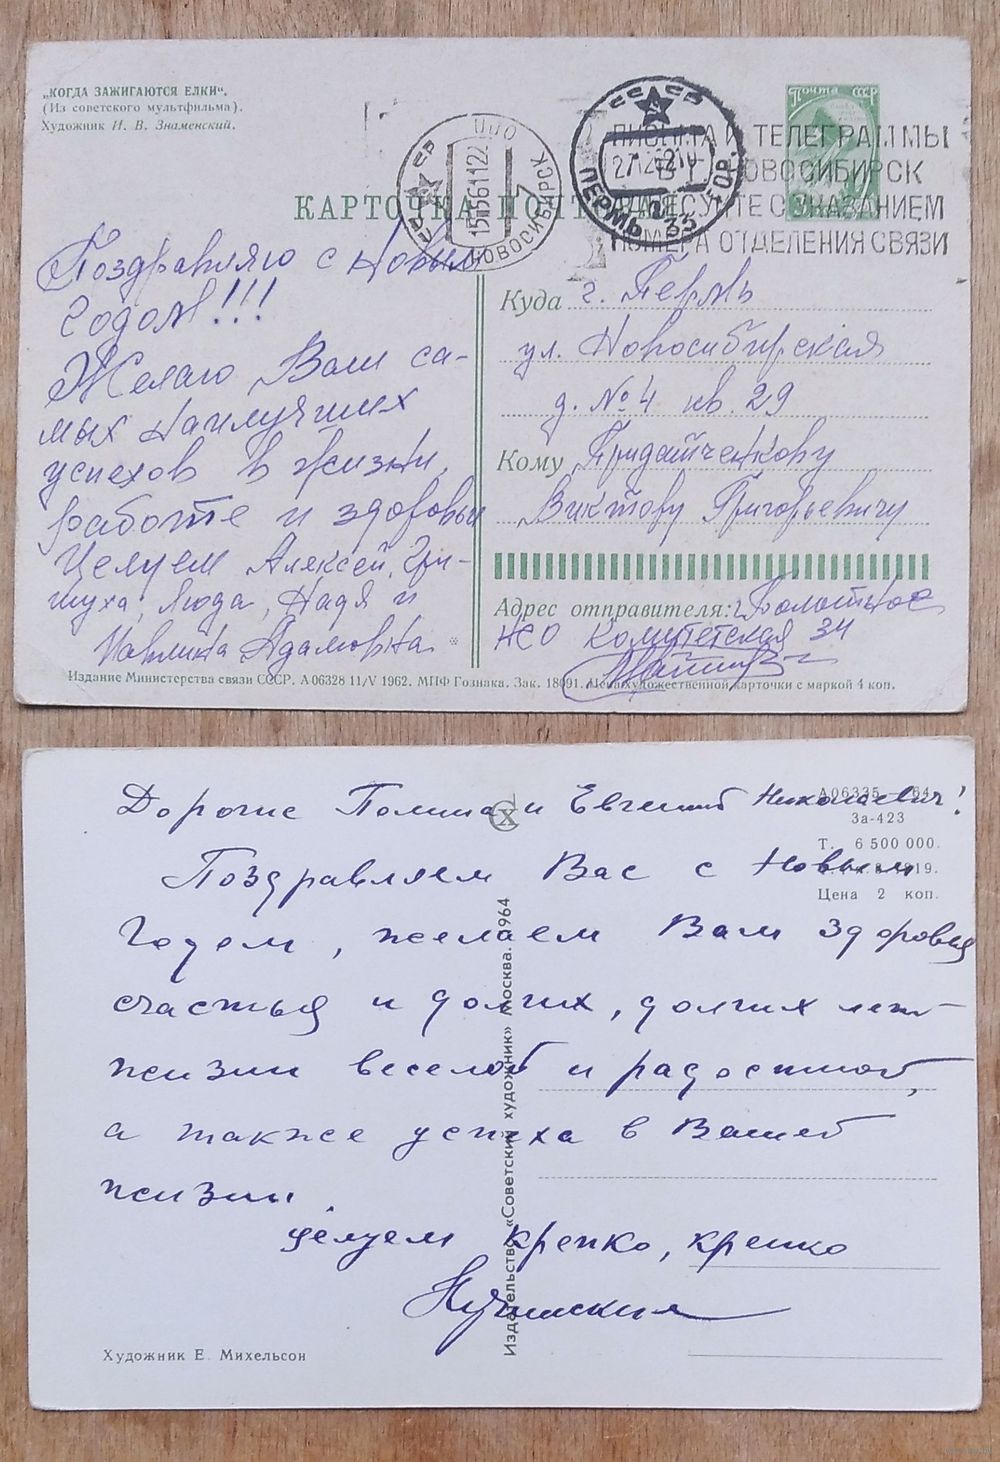 „КОГДА ЗАЖИГАЮТСЯ ЕЛКИ“.
(Из советского мультфильма).
Художник И. В. Знаменский.
Почта СССР
ПИСЬМА И ТЕЛЕГРАММЫ
НОВОСИБИРСК
С УКАЗАНИЕМ
НОМЕРА ОТДЕЛЕНИЯ СВЯЗИ
СССР
НОВОСИБИРСК
СССР
ПЕРМЬ
ГОР.
КАРТОЧКА ПОЧТОВАЯ
Поздравляю с Новым
годом!!!
Желаю Вам са-
мых наилучших
успехов в жизни,
работе и здоровьи
Целуем Алексей, Гри-
шуха, Люда, Надя и
Павлина Адамовна.
Куда г. Пермь
ул. Новосибирская
д. №4 кв. 29
Кому Придатченкову
Виктору Григорьевичу
Адрес отправителя: г. Болотное
НСО Комитетская 34
Издание Министерства связи СССР. А 06328 11/V 1962. МПФ Гознака. Зак. 18091. Цена художественной карточки с маркой 4 коп.
Дорогие Полина и Евгений Николаевич!
Поздравляем Вас с Новым
Годом, желаем Вам здоровья
счастья и долгих, долгих лет
жизни веселой и радостной,
а также успеха в Вашей
жизни.
Целуем крепко, крепко
А06335 64.
За-423
Т. 6 500 000.
Цена 2 коп.
Издательство «Советский художник» Москва. 1964
Художник Е. Михельсон